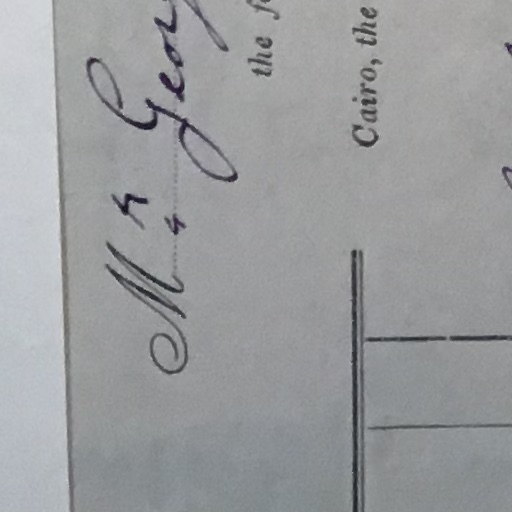 Mr Geor
the f
Cairo, the